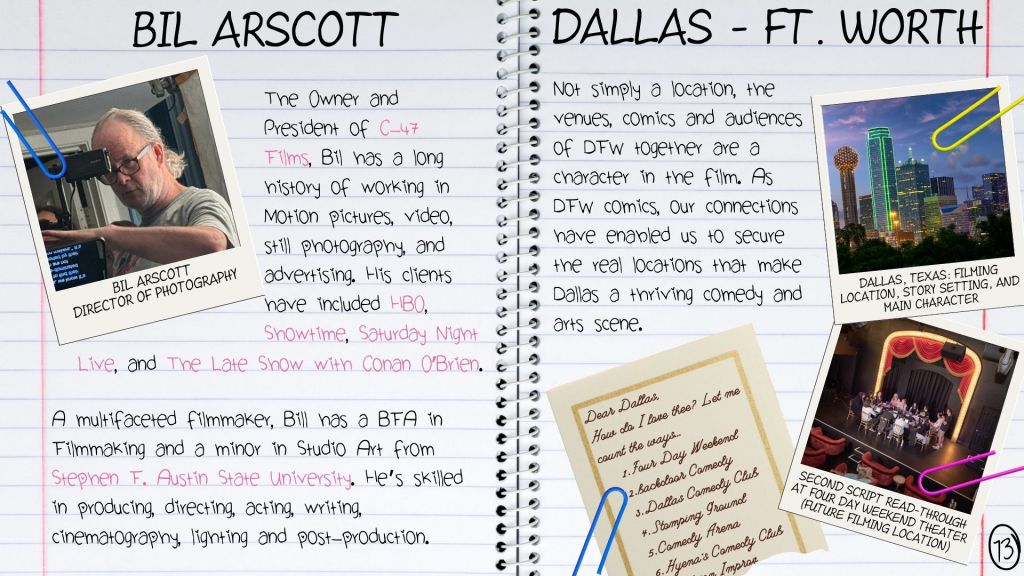 BIL ARSCOTT
The Owner and
President of C-47
Films, Bil has a long
history of working in
Motion pictures, video,
still photography, and
advertising. His clients
have included HBO,
Showtime, Saturday Night
Live, and The Late Show with Conan O'Brien.
BIL ARSCOTT
DIRECTOR OF PHOTOGRAPHY
A multifaceted filmmaker, Bill has a BFA in
Filmmaking and a minor in Studio Art from
Stephen F. Austin State University. He's skilled
in producing, directing, acting, writing,
cinematography, lighting and post-production.
DALLAS - FT. WORTH
Not simply a location, the
venues, comics and audiences
of DFW together are a
character in the film. As
DFW comics, our connections
have enabled us to secure
the real locations that make
Dallas a thriving comedy and
arts scene.
DALLAS, TEXAS: FILMING
LOCATION, STORY SETTING, AND
MAIN CHARACTER
Dear Dallas,
How do I love thee? Let me
count the ways...
1. Four Day Weekend
2. Backdoor Comedy
3. Dallas Comedy Club
4. Stomping Ground
5. Comedy Arena
6. Hyena's Comedy Club
Improv
SECOND SCRIPT READ-THROUGH
AT FOUR DAY WEEKEND THEATER
(FUTURE FILMING LOCATION)
13